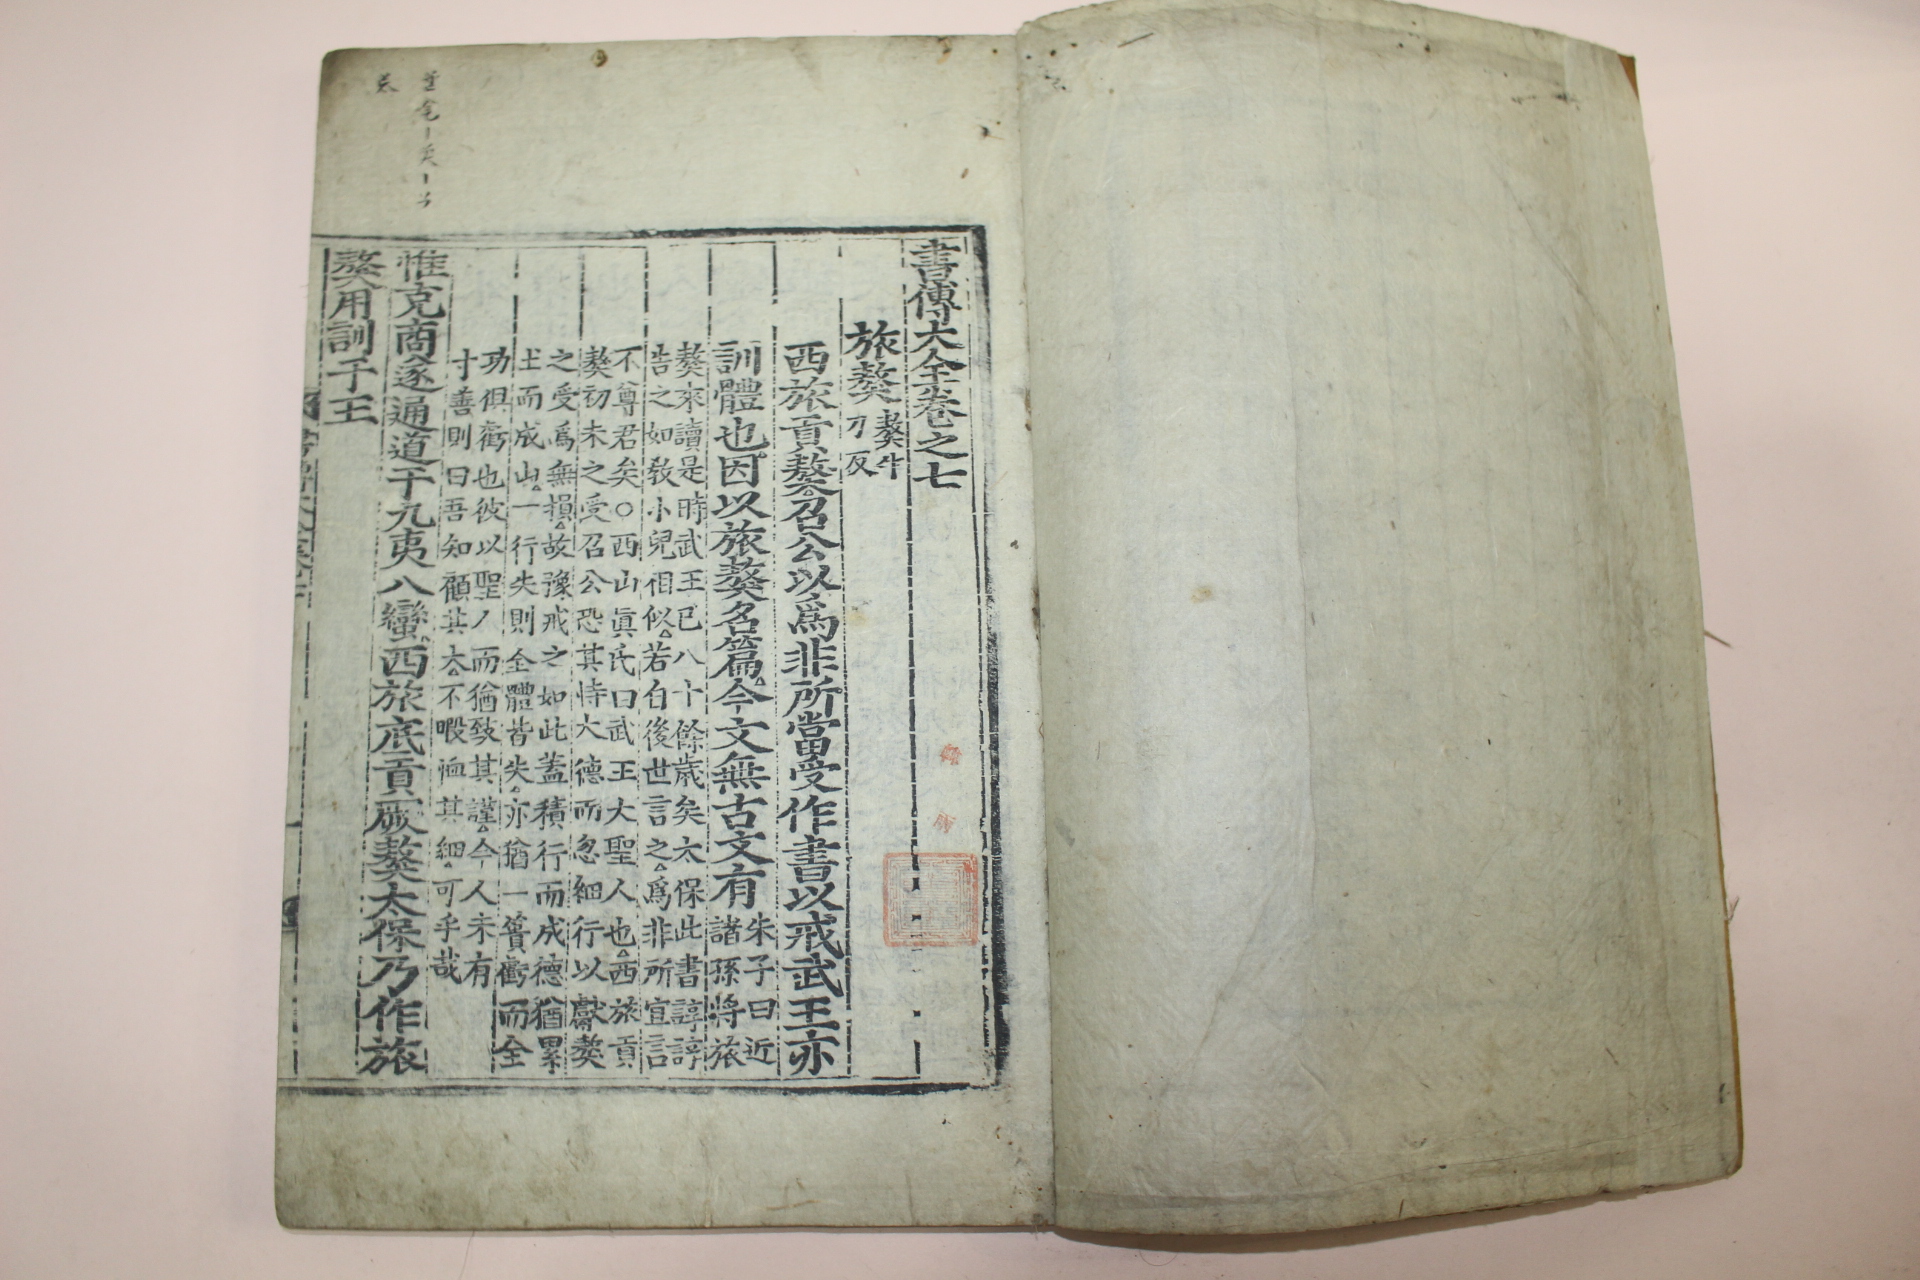 書傳大全卷之七
旅獒 獒牛刀反
西旅貢獒召公以爲非所當受作書以戒武王亦
訓體也因以旅獒名篇今文無古文有 朱子曰近
諸孫將旅
獒來讀是時武王已八十餘歲矣太保此書諄諄
告之如敎小兒相似若自後世言之爲非所宜言
不尊君矣○西山眞氏曰武王大聖人也西旅貢
獒初未之受召公恐其恃大德而忽細行以獻獒
之受爲無損故豫戒之如此蓋積行而成德猶累
土而成山一行失則全體皆失亦猶一簣虧而全
功俱虧也彼以聖人而猶致其謹今人未有
寸善則曰吾知顧其大不暇恤其細可乎哉
惟克商遂通道于九夷八蠻西旅底貢厥獒太保乃作旅
獒用訓于王